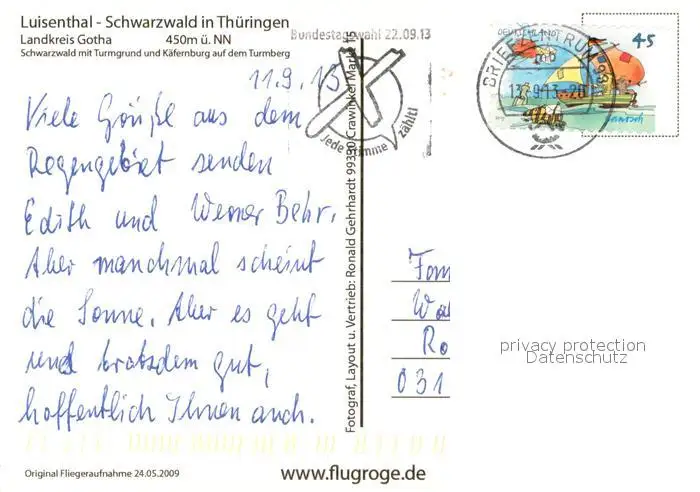 Luisenthal - Schwarzwald in Thüringen
Landkreis Gotha 450m ü. NN
Schwarzwald mit Turmgrund und Käfernburg auf dem Turmberg
Bundestagswahl 22.09.13
Jede Stimme zählt!
DEUTSCHLAND
45
Janosch
BRIEFZENTRUM
11.9.13
Viele Grüße aus dem
Regengebiet senden
Edith und Werner Behr.
Aber manchmal scheint
die Sonne. Aber es geht
uns trotzdem gut,
hoffentlich Ihnen auch.
Fam
Wa
Ro
031
privacy protection
Datenschutz
Fotograf, Layout u. Vertrieb: Ronald Gehrhardt 99330 Crawinkel
Original Fliegeraufnahme 24.05.2009
www.flugroge.de